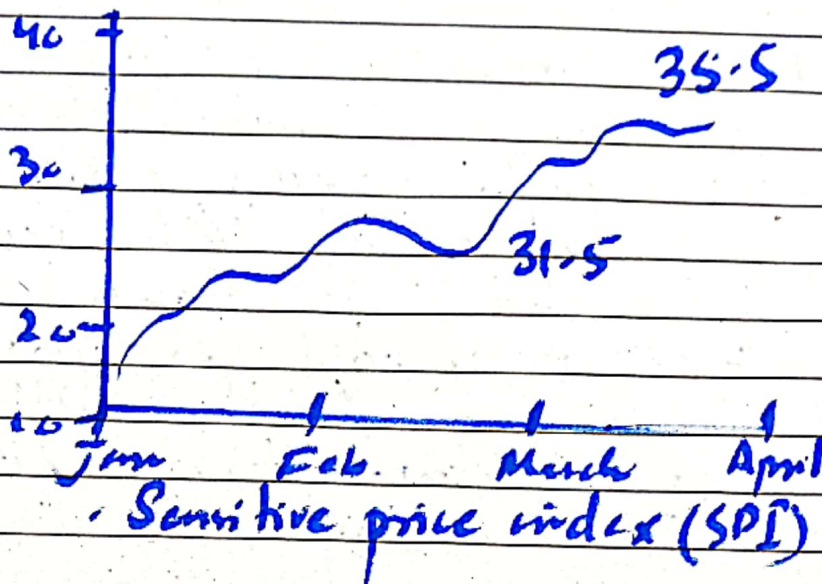 40
35.5
30
31.5
20
10
Jan Feb. March April
. Sensitive price index (SPI)